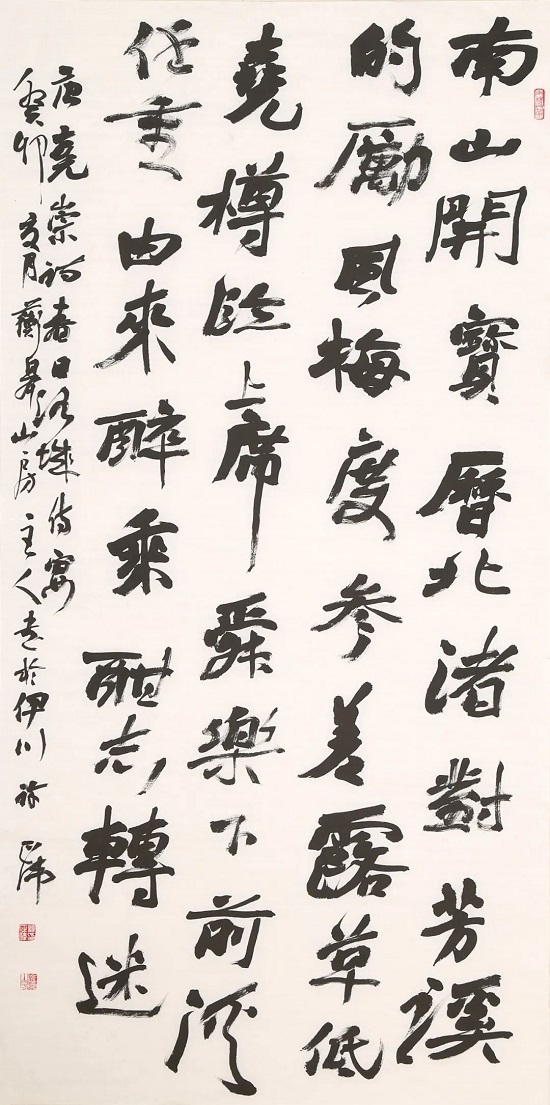 南山開寶曆北渚對芳蹊
的勵風梅度參差露草低
堯樽臨上席舜樂下前溪
任重由來醉乘酣志轉迷
唐堯崇詩春日洛城侍宴
癸卯亥月山房主人書於伊川